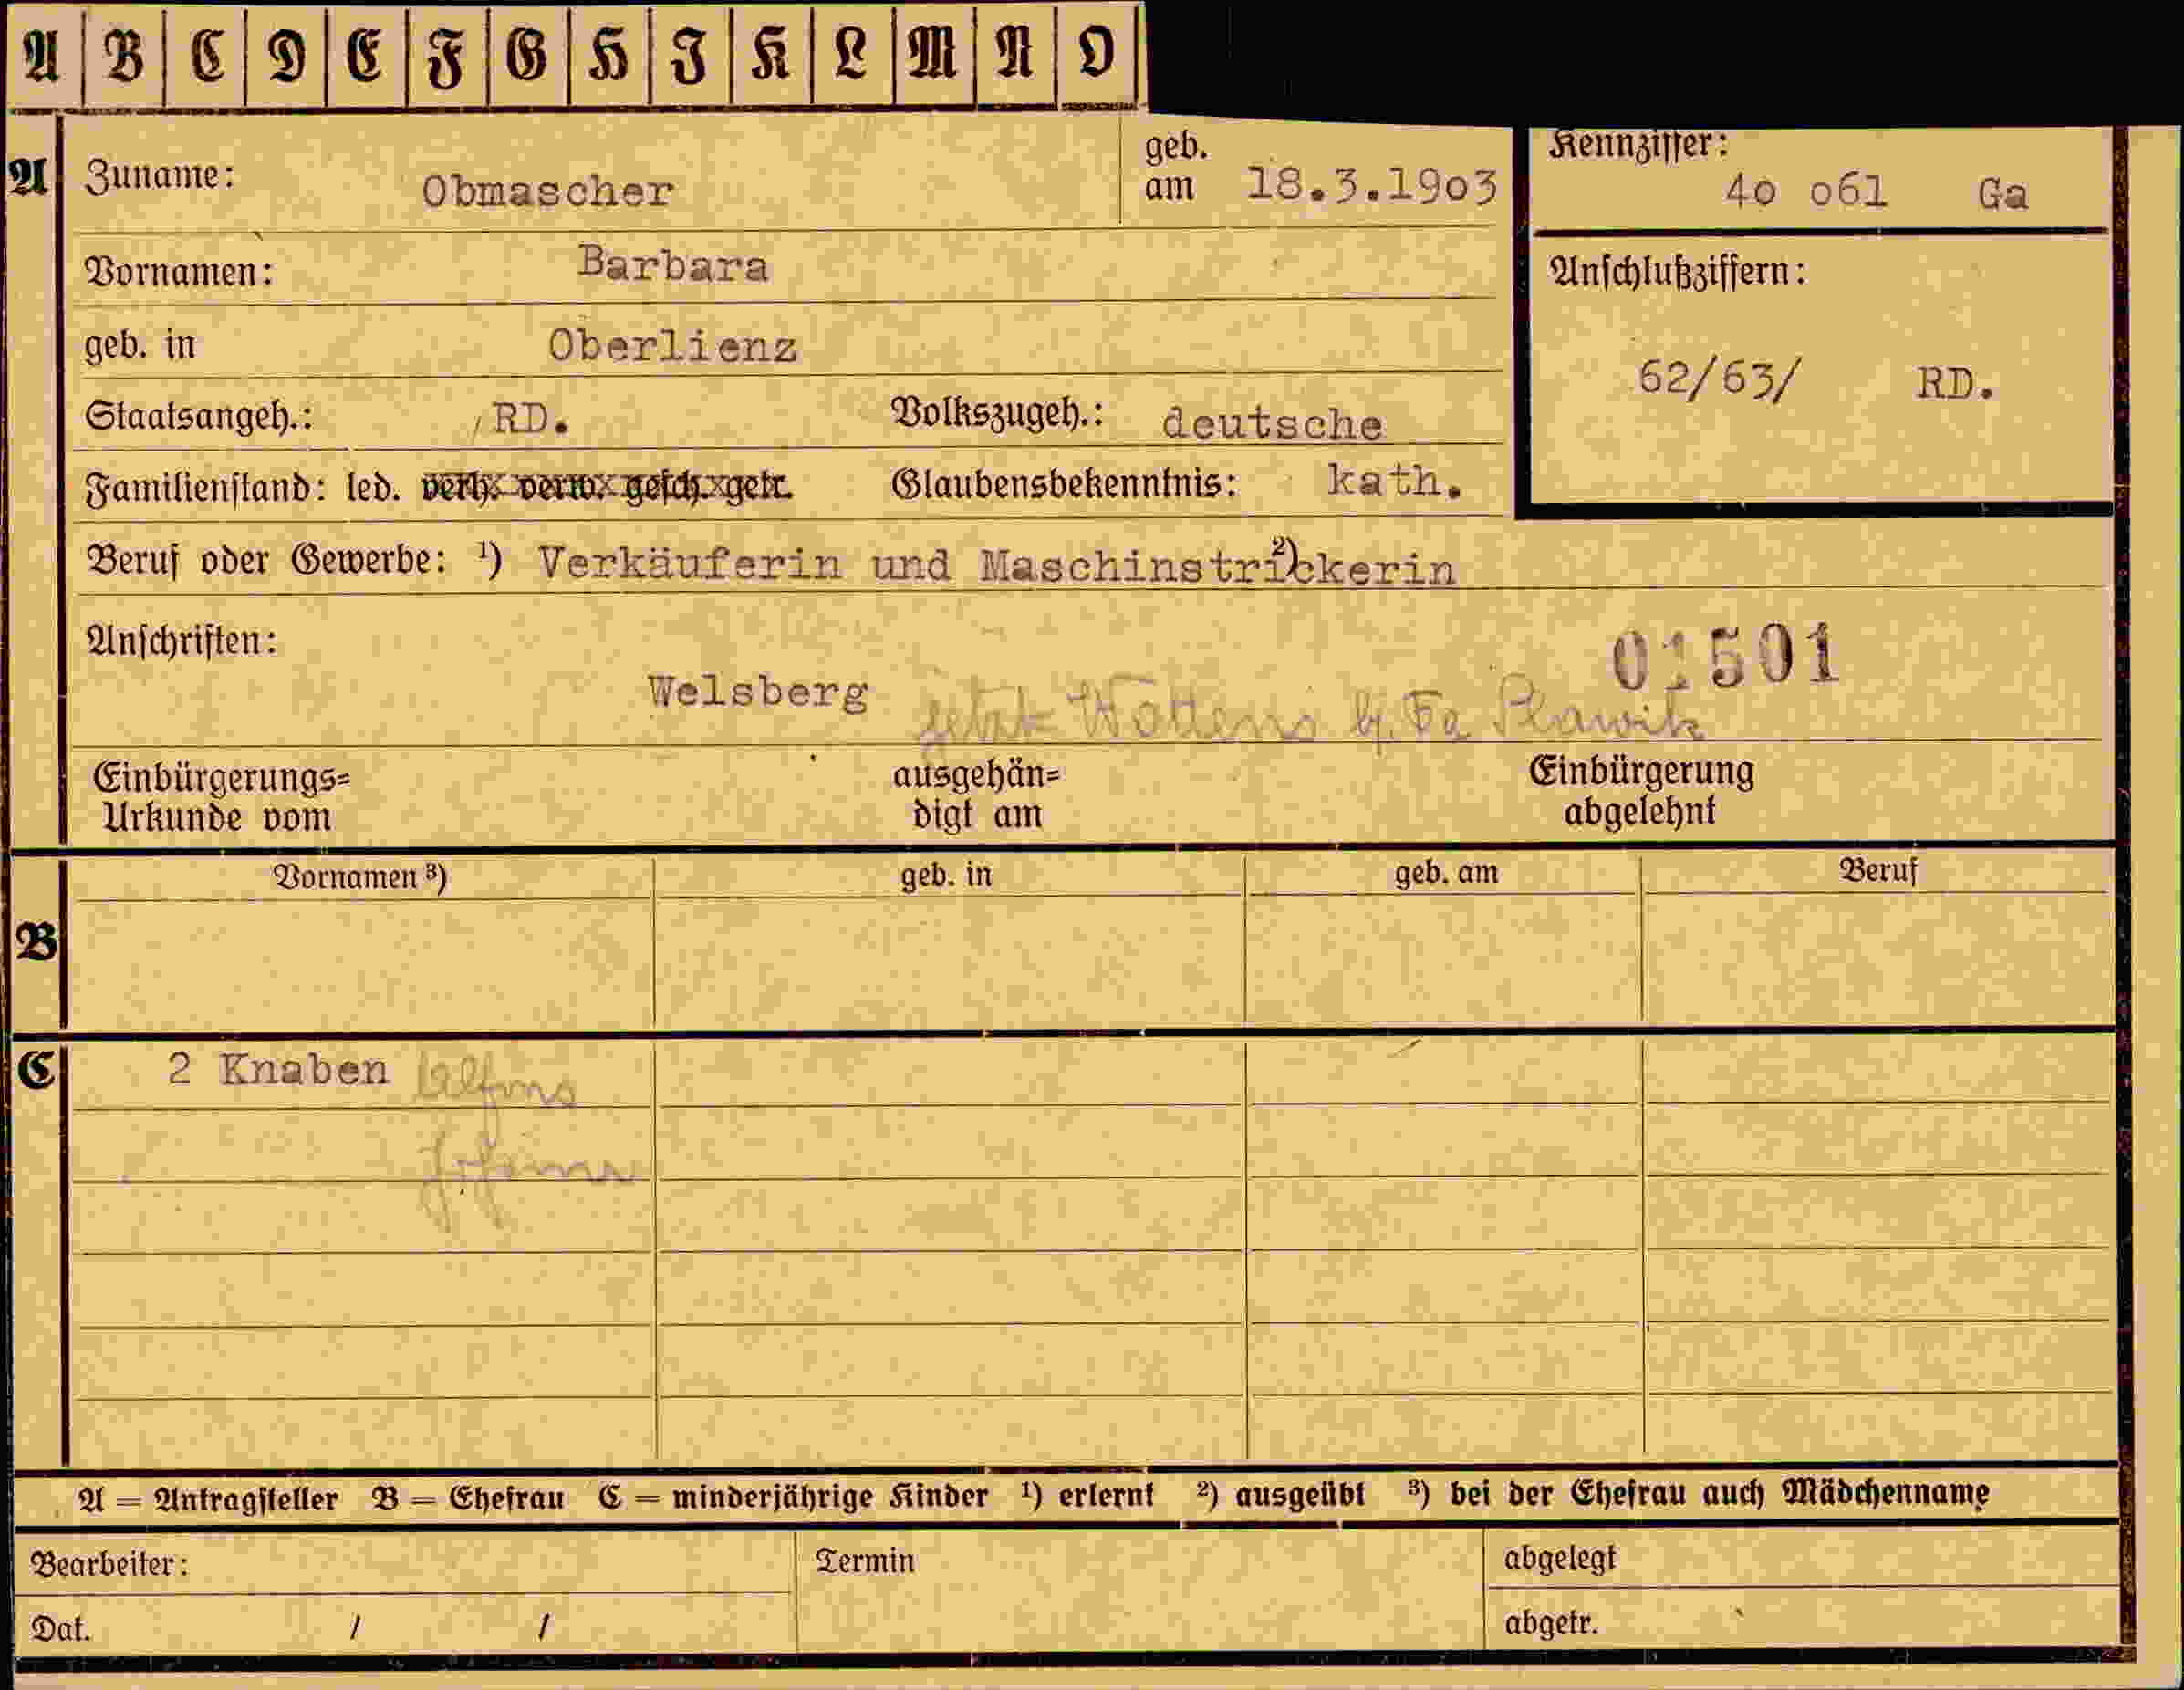 A B C D E F G H I K L M N O
A Zuname: Obmascher geb. am 18.3.1903
Kennziffer: 4o o61 Ga
Vornamen: Barbara
Anschlußziffern:
geb. in Oberlienz
62/63/ RD.
Staatsangeh.: RD. Volkszugeh.: deutsche
Familienstand: led. verh. verw. gesch. getr. Glaubensbekenntnis: kath.
Beruf oder Gewerbe: ¹) Verkäuferin und Maschinstrickerin ²)
Anschriften:
01501
Welsberg jetzt Wattens b. Fa
Einbürgerungs= ausgehän= Einbürgerung
Urkunde vom digt am abgelehnt
Vornamen ³) geb. in geb. am Beruf
B
C 2 Knaben Alfons
A = Antragsteller B = Ehefrau C = minderjährige Kinder ¹) erlernt ²) ausgeübt ³) bei der Ehefrau auch Mädchenname
Bearbeiter: Termin abgelegt
Dat. / / abgetr.